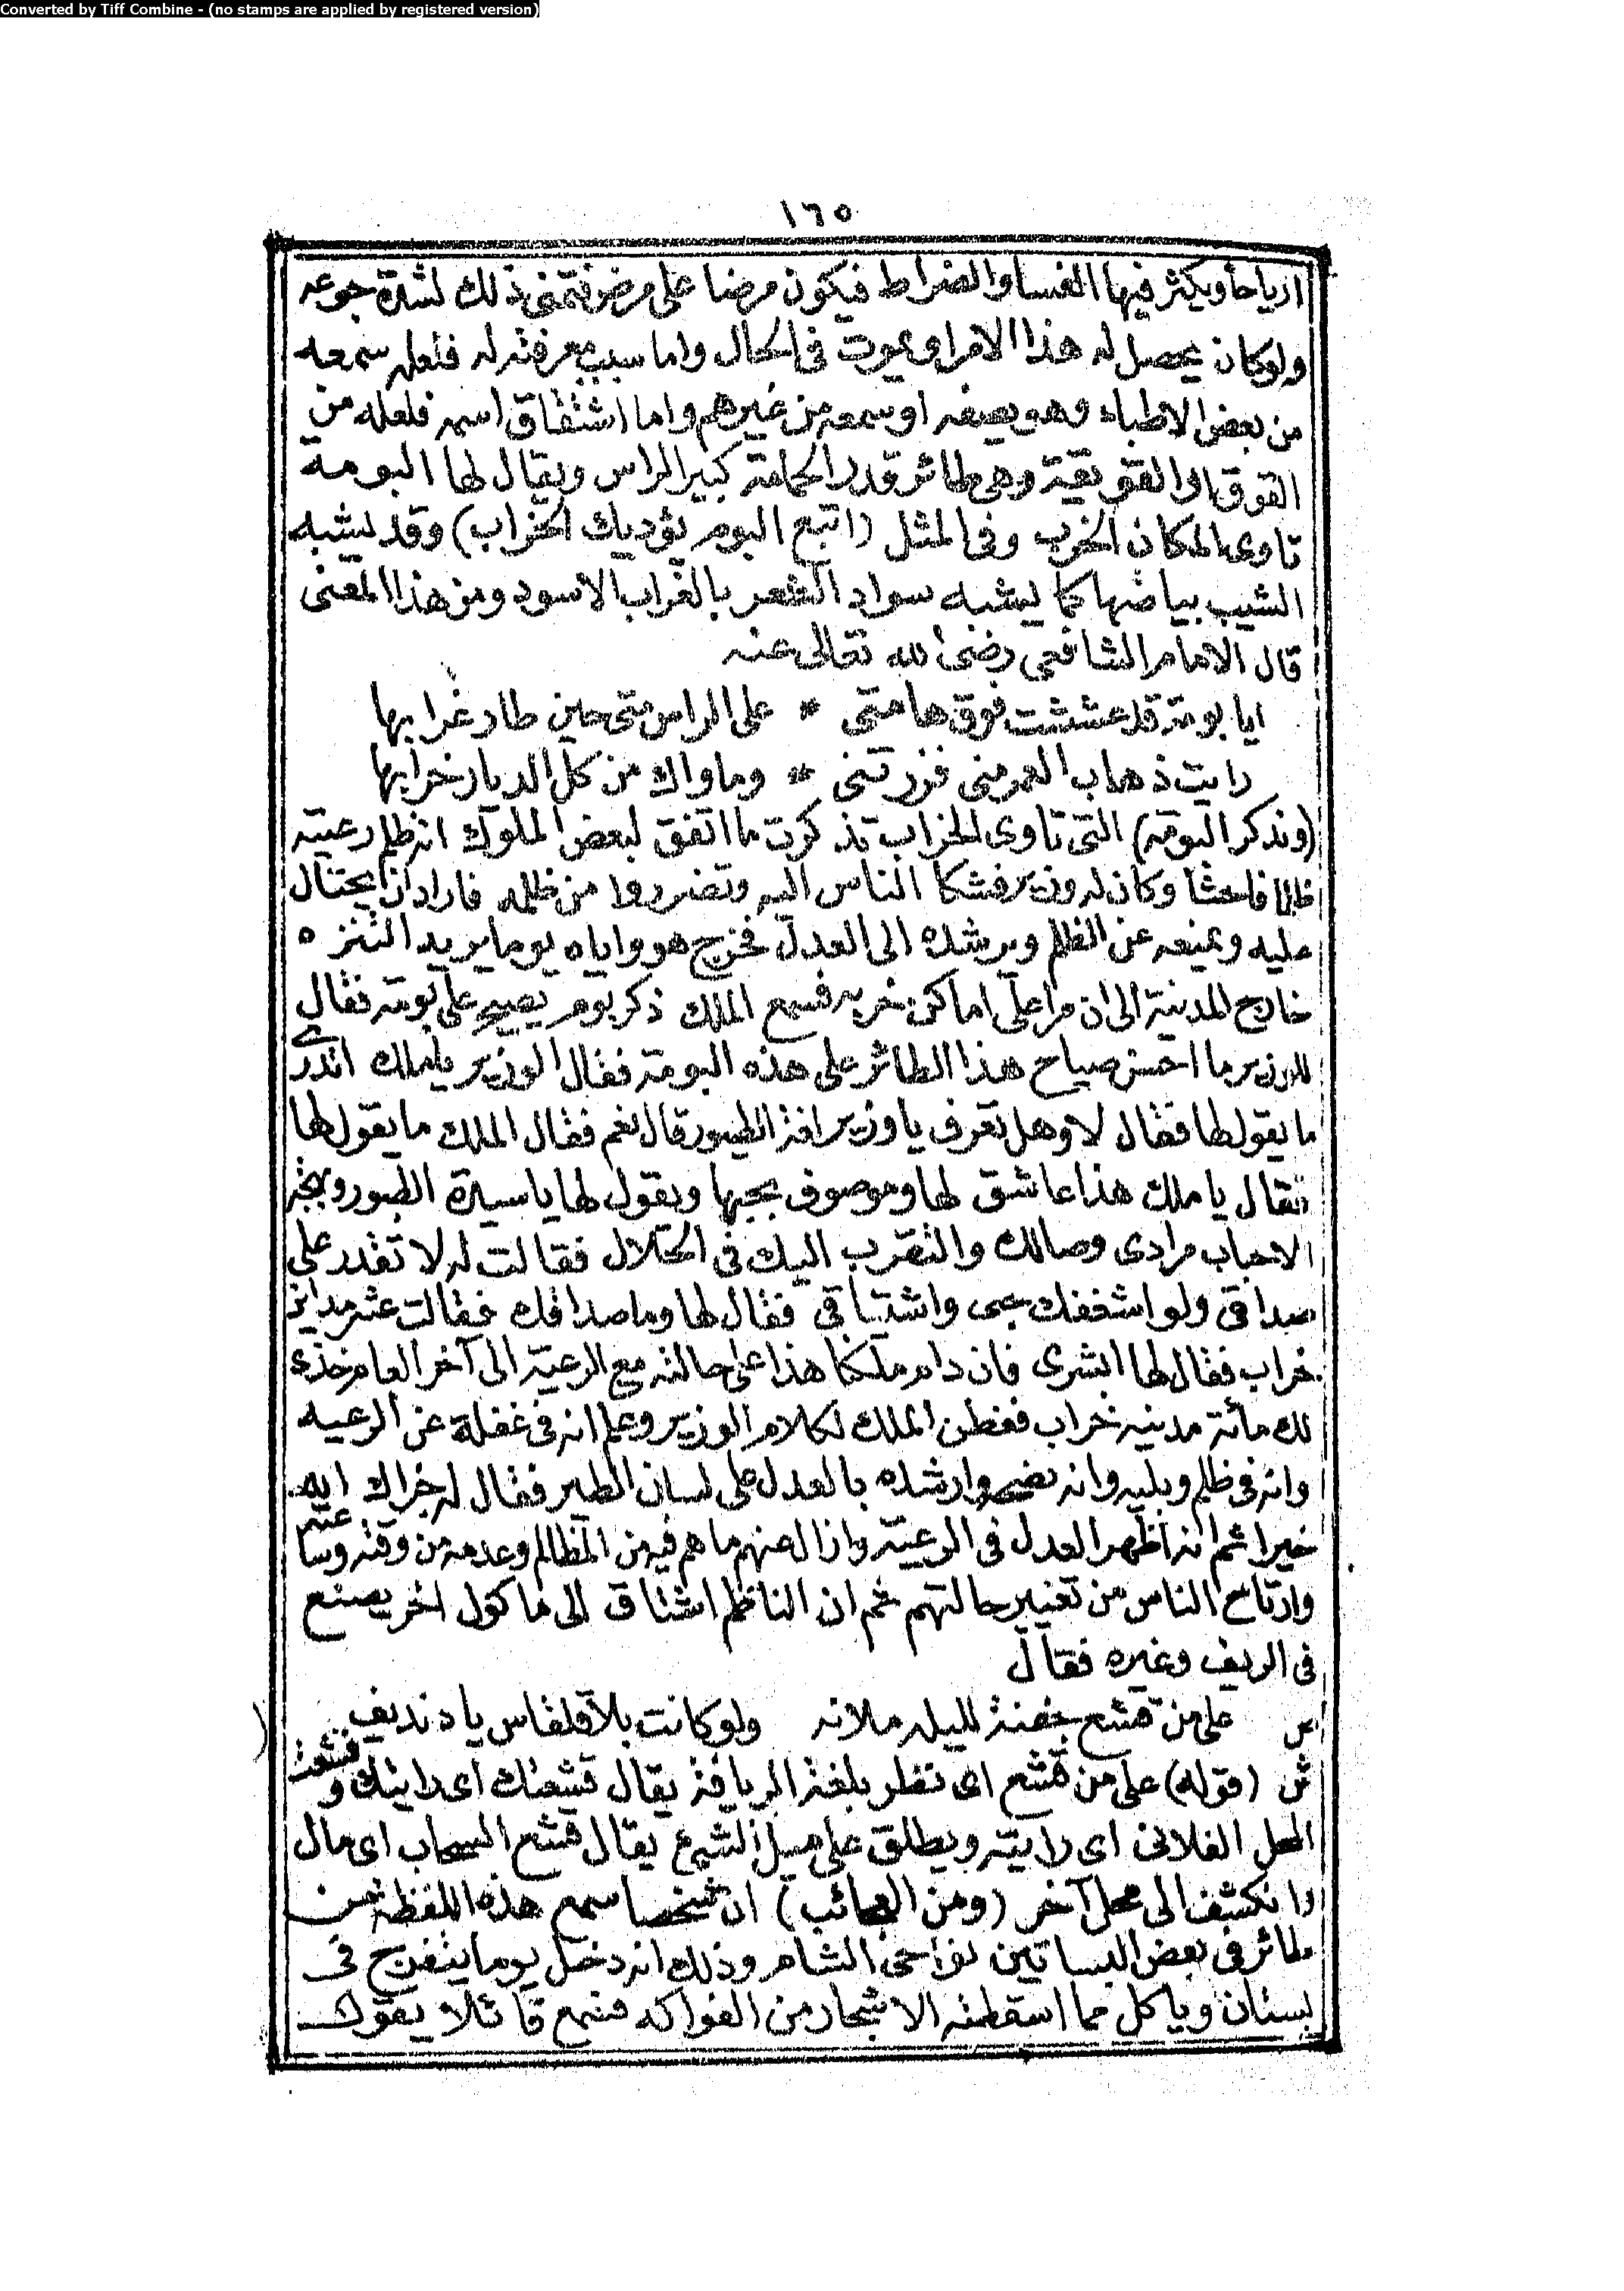 Converted by Tiff Combine - (no stamps are applied by registered version)
١٦٥
ارياحا ويكثر فيها الفسا والضراط فيكون مرضا على مرض فتمنى ذلك لشدة جوعه
ولو كان يحصل له هذا الامر او يموت فى الحال واما سبب معرفته له فلعله سمعه
من بعض الاطباء وهو يصفه او سمعه من غيرهم واما اشتقاق اسمه فلعله من
القوق او القويقية وهى طائر قدر الحمامة كبير الراس ويقال لها البومة
تاوى المكان الخرب وفى المثل (اتبع البوم يؤديك الخراب) وقد يشبه
الشيب بياضها كما يشبه سواد الشعر بالغراب الاسود ومن هذا المعنى
قال الامام الشافعى رضى الله تعالى عنه
ايا بومة قد عششت فوق هامتى * على الراس متى حين طار غرابها
رايت ذهاب العمر منى فزرتنى * وماواك من كل الديار خرابها
(وبذكر البومة) التى تاوى الخراب تذكرت ما اتفق لبعض الملوك انه ظلم رعيته
ظلما فاحشا وكان له وزير فشكا الناس اليه وتضرروا من ظلمه فاراد ان يحتال
عليه ويمنعه عن الظلم ويرشده الى العدل فخرج هو واياه يوما يريد التنزه
خارج المدينة الى ان مرا على اماكن خربه فسمع الملك ذكر بوم يصيح على بومة فقال
للوزير ما احسن صياح هذا الطائر على هذه البومة فقال الوزير يا ملك اتدرى
ما يقول لها فقال لا وهل تعرف يا وزير لغة الطيور قال نعم فقال الملك ما يقول لها
فقال يا ملك هذا عاشق لها وموصوف بحبها ويقول لها يا سيدة الطيور وبهجة
الاحباب مرادى وصالك والتقرب اليك فى الحلال فقالت له لا تقدر على
صداقى ولو اشغفك حبى واشتياقى فقال لها وما صداقك فقالت عشر مداين
خراب فقال لها ابشرى فان دام ملكنا هذا على حالته مع الرعية الى آخر العام خذى
لك مائة مدينه خراب ففطن الملك لكلام الوزير وعلم انه فى غفلة عن الرعيه
وانه فى ظلم وبليه وانه نصحه وارشده بالعدل على لسان الطير فقال له جزاك الله
خيرا ثم انه اظهر العدل فى الرعية وازال عنهم ما هم فيه من المظالم وعدمه من وقته وساعته
وارتاح الناس من تغيير حالتهم ثم ان الناظم اشتاق الى ماكول اخر يصنع
فى الريف وغيره فقال
ص على من قشع جفنة لليله ملانه ولو كانت بلا قلقاس يا دنديف
ش (قوله) على من قشع اى نظر بلغة الريافة يقال قشعتك اى رايتك وقشعت
المحل الفلانى اى رايته ويطلق على ميل الشىء يقال قشع السحاب اى مال
وانكشف الى محل آخر (ومن العجائب) ان شخصا سمع هذه اللفظة من
طائر فى بعض البساتين بنواحى الشام وذلك انه دخل يوما يتفرج فى
بستان وياكل مما اسقطته الاشجار من الفواكه فسمع قائلا يقول